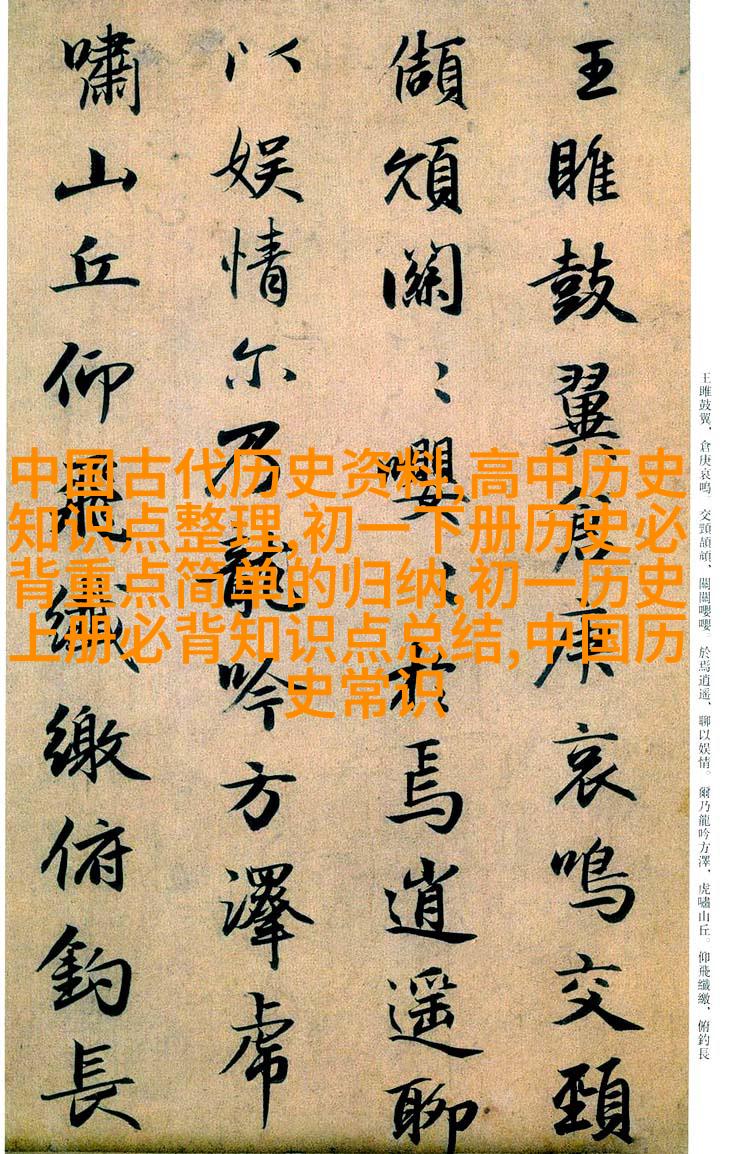 王雎鼓翼倉庚哀鳴交頸
頡頏關〻嚶〻於焉逍遥聊
以娱情尔乃龍吟方澤虎
嘯山丘仰飛纖繳俯釣長
王雎鼓翼、倉庚哀鳴。交頸頡頏、關關嚶嚶。於焉逍遥、聊以娱情。爾乃龍吟方澤、虎嘯山丘。仰飛纖繳、俯釣長
中国古代历史资料,高中历史
知识点整理,初一下册历史必
背重点简单的归纳,初一历史
上册必背知识点总结,中国历
史常识